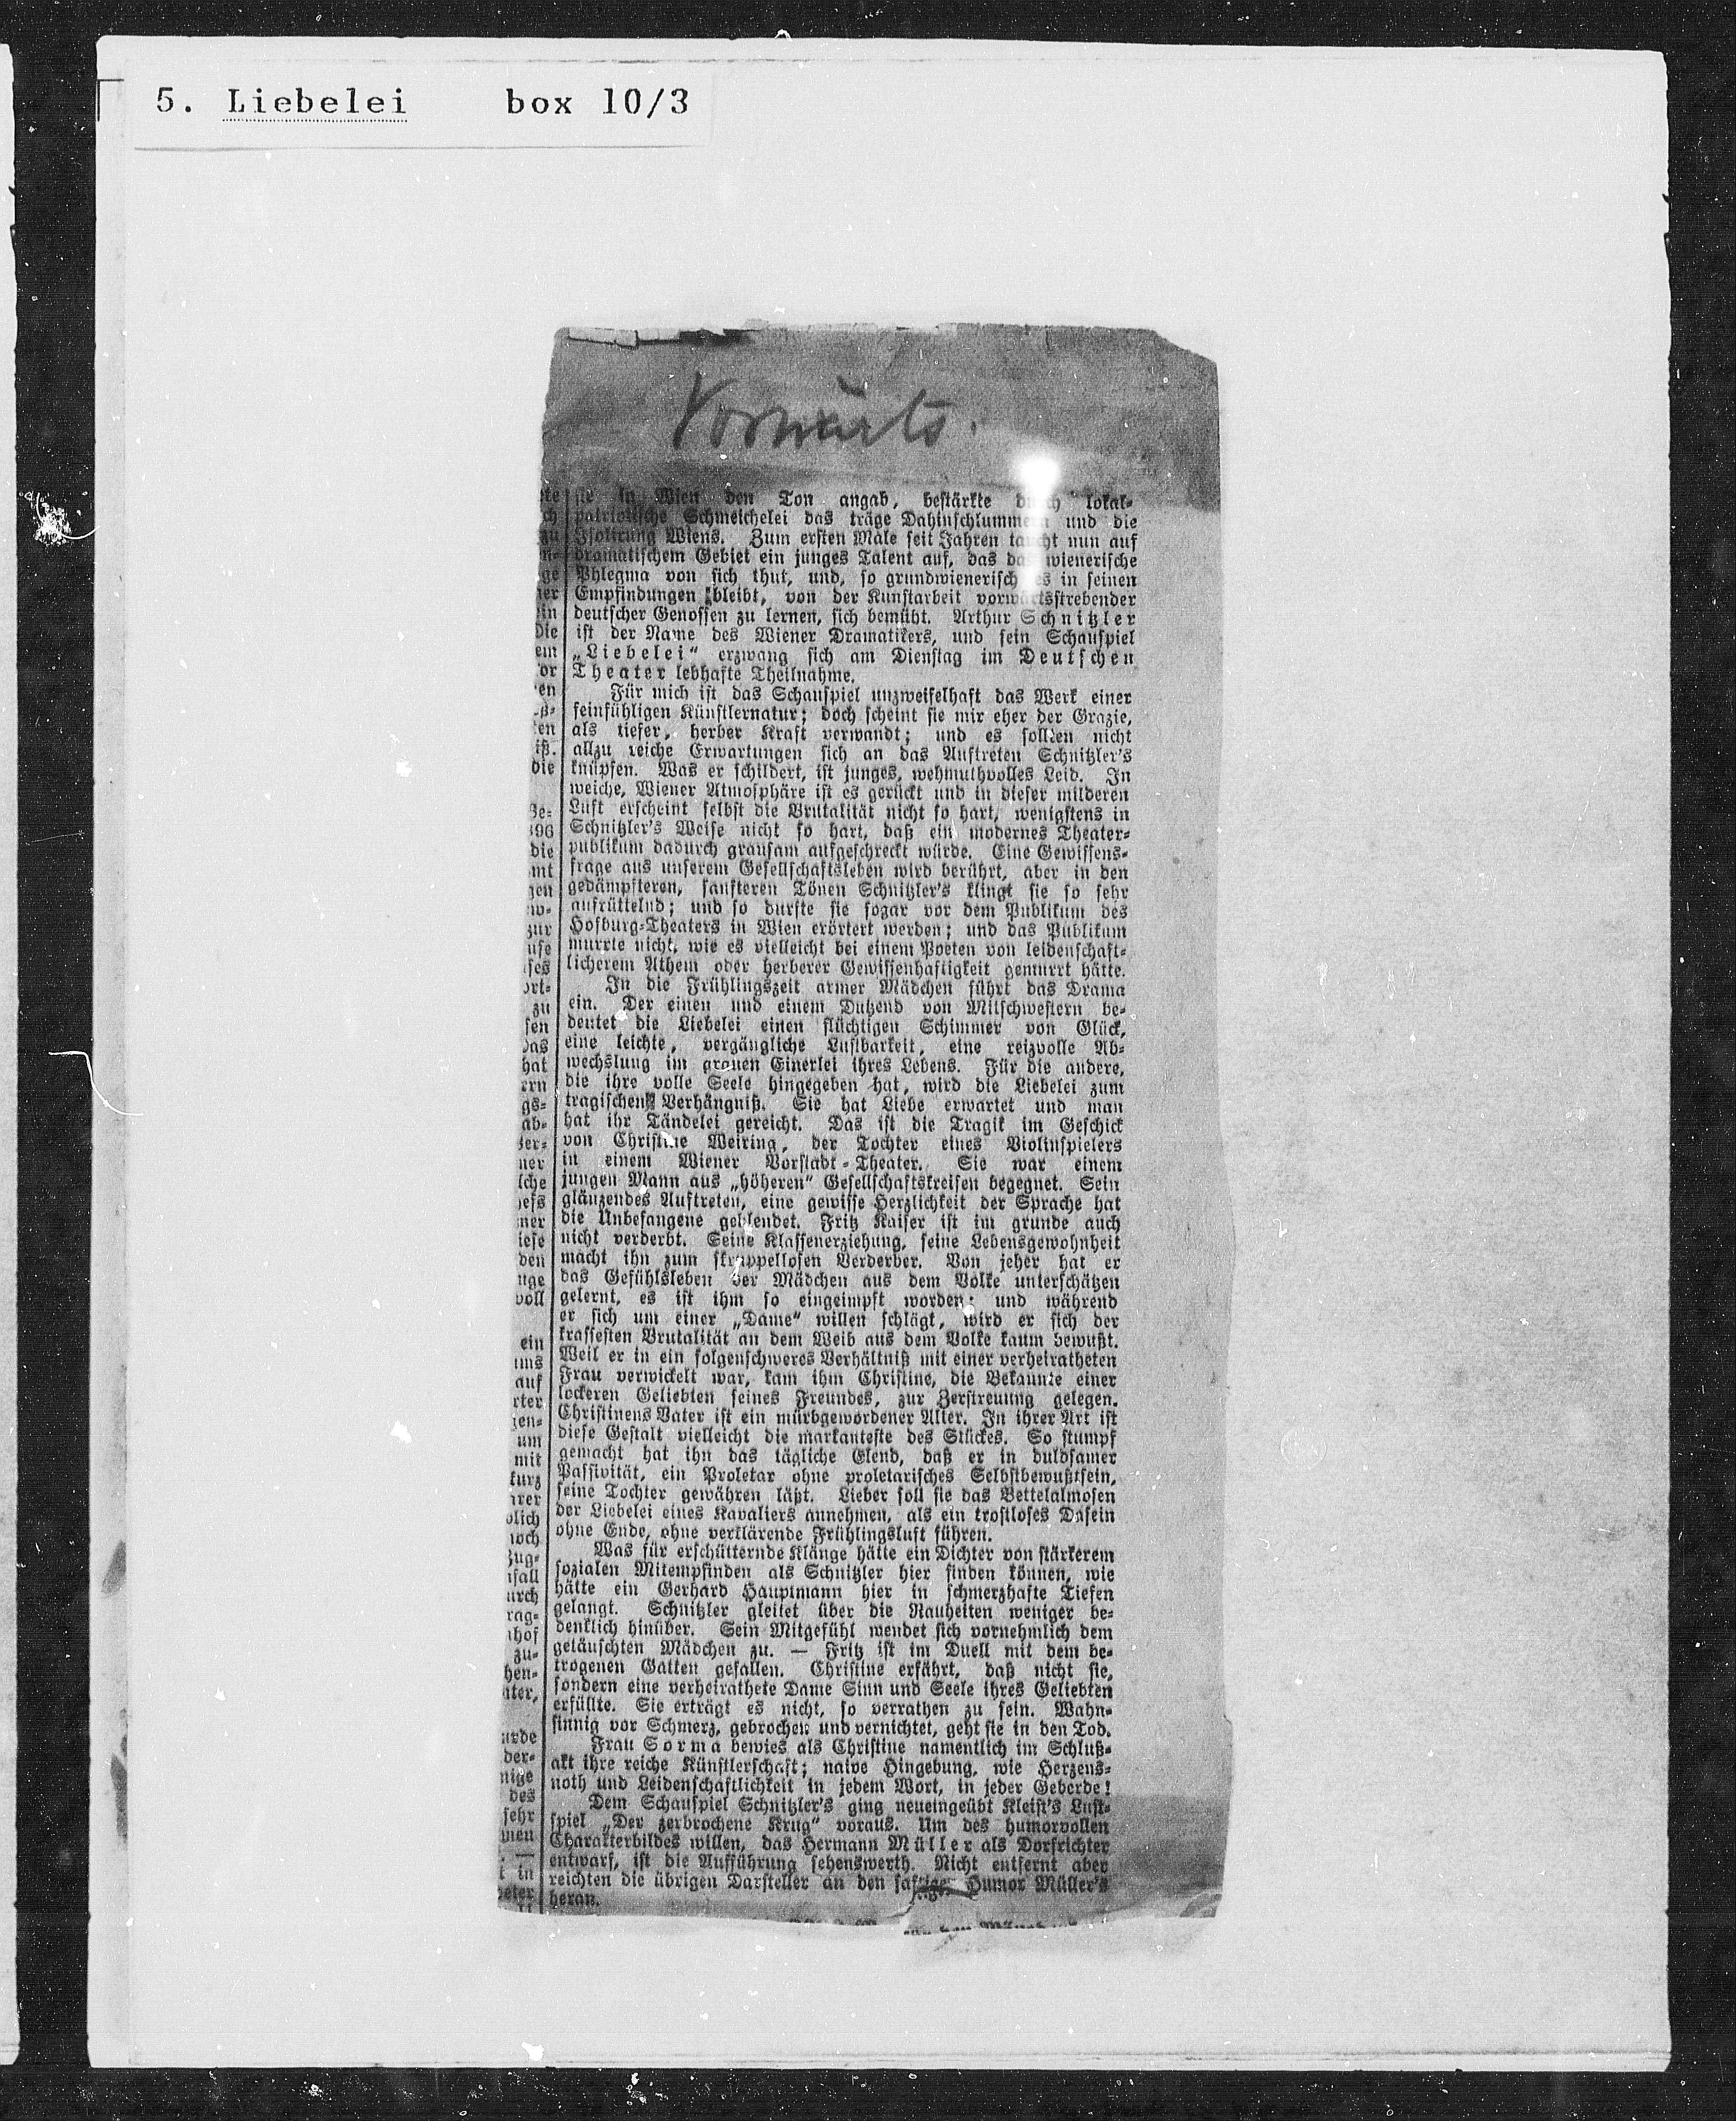 5. Liebelei box 10/3
Vorwärts.
sie in Wien den Ton angab, bestärkte durch lokal-
patriotische Schmeichelei das träge Dahinschlummern und die
Isolirung Wiens. Zum ersten Male seit Jahren taucht nun auf
dramatischem Gebiet ein junges Talent auf, das das wienerische
Phlegma von sich thut, und, so grundwienerisch es in seinen
Empfindungen bleibt, von der Kunstarbeit vorwärtsstrebender
deutscher Genossen zu lernen, sich bemüht. Arthur Schnitzler
ist der Name des Wiener Dramatikers, und sein Schauspiel
„Liebelei“ erzwang sich am Dienstag im Deutschen
Theater lebhafte Theilnahme.
Für mich ist das Schauspiel unzweifelhaft das Werk einer
feinfühligen Künstlernatur; doch scheint sie mir eher der Grazie,
als tiefer, herber Kraft verwandt; und es sollten nicht
allzu reiche Erwartungen sich an das Auftreten Schnitzler's
knüpfen. Was er schildert, ist junges, wehmuthvolles Leid. In
weiche, Wiener Atmosphäre ist es gerückt und in dieser milderen
Luft erscheint selbst die Brutalität nicht so hart, wenigstens in
Schnitzler's Weise nicht so hart, daß ein modernes Theater-
publikum dadurch grausam aufgeschreckt würde. Eine Gewissens-
frage aus unserem Gesellschaftsleben wird berührt, aber in den
gedämpfteren, sanfteren Tönen Schnitzler's klingt sie so sehr
aufrüttelnd; und so durfte sie sogar vor dem Publikum des
Hofburg-Theaters in Wien erörtert werden; und das Publikum
murrte nicht, wie es vielleicht bei einem Poeten von leidenschaft-
licherem Athem oder herberer Gewissenhaftigkeit gemurrt hätte.
In die Frühlingszeit armer Mädchen führt das Drama
ein. Der einen und einem Dutzend von Mitschwestern be-
deutet die Liebelei einen flüchtigen Schimmer von Glück,
eine leichte, vergängliche Lustbarkeit, eine reizvolle Ab-
wechslung im grauen Einerlei ihres Lebens. Für die andere,
die ihre volle Seele hingegeben hat, wird die Liebelei zum
tragischen Verhängniß. Sie hat Liebe erwartet und man
hat ihr Tändelei gereicht. Das ist die Tragik im Geschick
von Christine Weiring, der Tochter eines Violinspielers
in einem Wiener Vorstadt-Theater. Sie war einem
jungen Mann aus „höheren“ Gesellschaftskreisen begegnet. Sein
glänzendes Auftreten, eine gewisse Herzlichkeit der Sprache hat
die Unbefangene geblendet. Fritz Kaiser ist im grunde auch
nicht verderbt. Seine Klassenerziehung, seine Lebensgewohnheit
macht ihn zum skruppellosen Verderber. Von jeher hat er
das Gefühlsleben der Mädchen aus dem Volke unterschätzen
gelernt, es ist ihm so eingeimpft worden; und während
er sich um einer „Dame“ willen schlägt, wird er sich der
krassesten Brutalität an dem Weib aus dem Volke kaum bewußt.
Weil er in ein folgenschweres Verhältniß mit einer verheiratheten
Frau verwickelt war, kam ihm Christine, die Bekannte einer
lockeren Geliebten seines Freundes, zur Zerstreuung gelegen.
Christinens Vater ist ein mürbgewordener Alter. In ihrer Art ist
diese Gestalt vielleicht die markanteste des Stückes. So stumpf
gemacht hat ihn das tägliche Elend, daß er in duldsamer
Passivität, ein Proletar ohne proletarisches Selbstbewußtsein,
seine Tochter gewähren läßt. Lieber soll sie das Bettelalmosen
der Liebelei eines Kavaliers annehmen, als ein trostloses Dasein
ohne Ende, ohne verklärende Frühlingsluft führen.
Was für erschütternde Klänge hätte ein Dichter von stärkerem
sozialen Mitempfinden als Schnitzler hier finden können, wie
hätte ein Gerhard Hauptmann hier in schmerzhafte Tiefen
gelangt. Schnitzler gleitet über die Rauheiten weniger be-
denklich hinüber. Sein Mitgefühl wendet sich vornehmlich dem
getäuschten Mädchen zu. — Fritz ist im Duell mit dem be-
trogenen Gatten gefallen. Christine erfährt, daß nicht sie,
sondern eine verheirathete Dame Sinn und Seele ihres Geliebten
erfüllte. Sie erträgt es nicht, so verrathen zu sein. Wahn-
sinnig vor Schmerz, gebrochen und vernichtet, geht sie in den Tod.
Frau Sorma bewies als Christine namentlich im Schluß-
akt ihre reiche Künstlerschaft; naive Hingebung, wie Herzens-
noth und Leidenschaftlichkeit in jedem Wort, in jeder Geberde!
Dem Schauspiel Schnitzler's ging neueingeübt Kleist's Lust-
spiel „Der zerbrochene Krug“ voraus. Um des humorvollen
Charakterbildes willen, das Hermann Müller als Dorfrichter
entwarf, ist die Aufführung sehenswerth. Nicht entfernt aber
reichten die übrigen Darsteller an den saftigen Humor Müller's
heran.